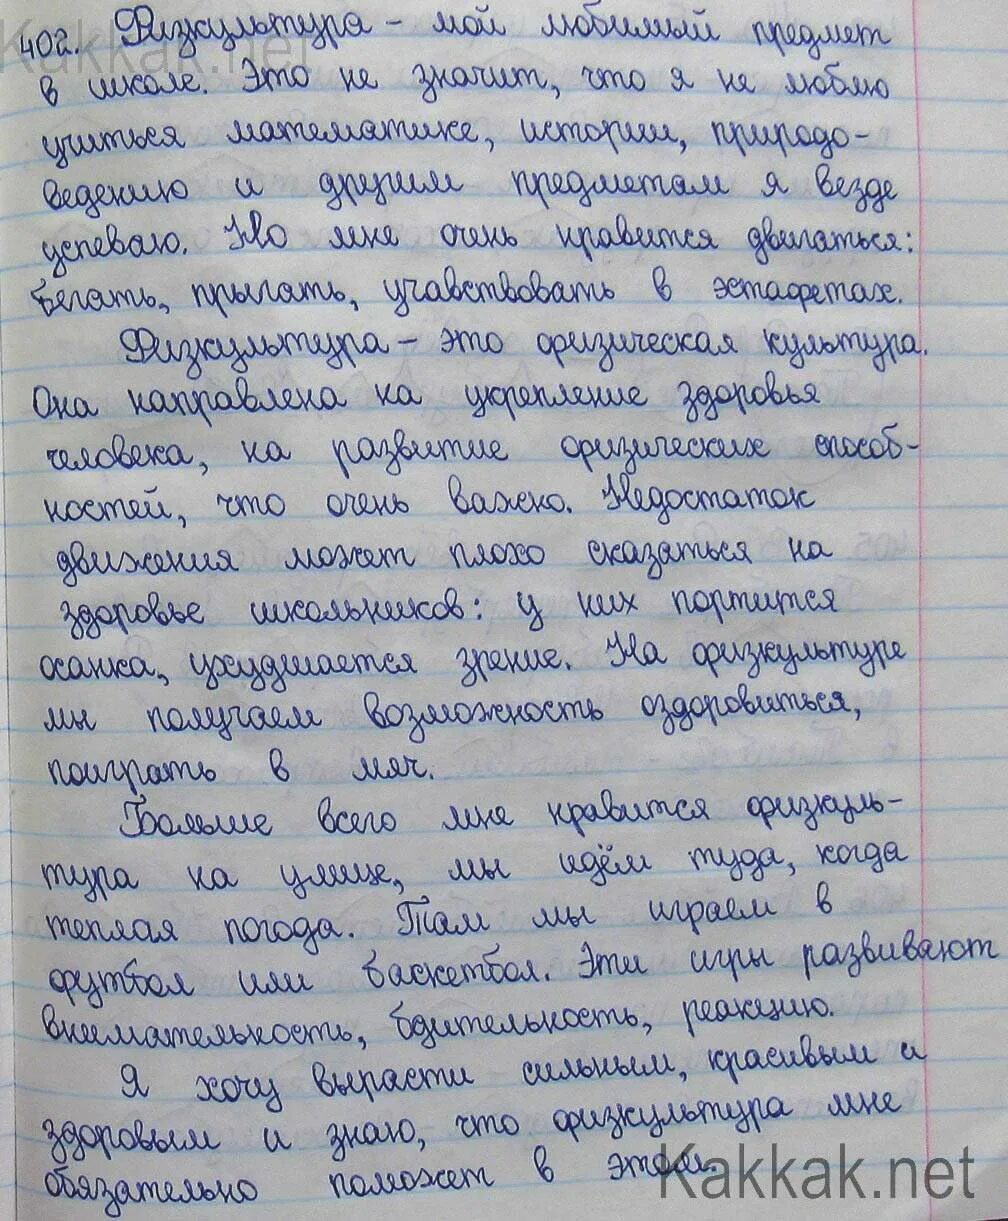 402. Физкультура – мой любимый предмет
в школе. Это не значит, что я не люблю
учиться математике, истории, природо-
ведению и другим предметам я везде
успеваю. Но мне очень нравится двигаться:
бегать, прыгать, учавствовать в эстафетах.
Физкультура – это физическая культура.
Она направлена на укрепление здоровья
человека, на развитие физических способ-
ностей, что очень важно. Недостаток
движения может плохо сказаться на
здоровье школьников: у них портится
осанка, ухудшается зрение. На физкультуре
мы получаем возможность оздоровиться,
поиграть в мяч.
Больше всего мне нравится физкуль-
тура на улице, мы идём туда, когда
теплая погода. Там мы играем в
футбол или баскетбол. Эти игры развивают
внимательность, бдительность, реакцию.
Я хочу вырасти сильным, красивым и
здоровым и знаю, что физкультура мне
обязательно поможет в этом.
Kakkak.net
Kakkak.net